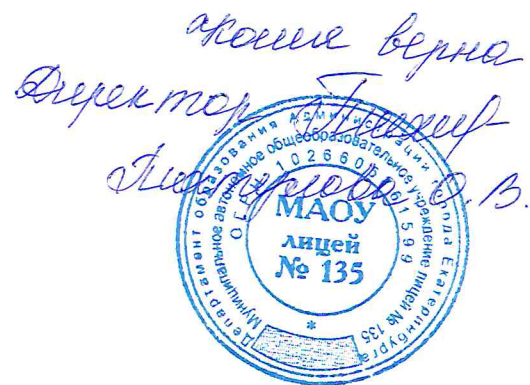 копия верна
Директор
О. В.
Департамент образования Администрации города Екатеринбурга
Муниципальное автономное общеобразовательное учреждение лицей № 135
МАОУ
лицей
№ 135
*